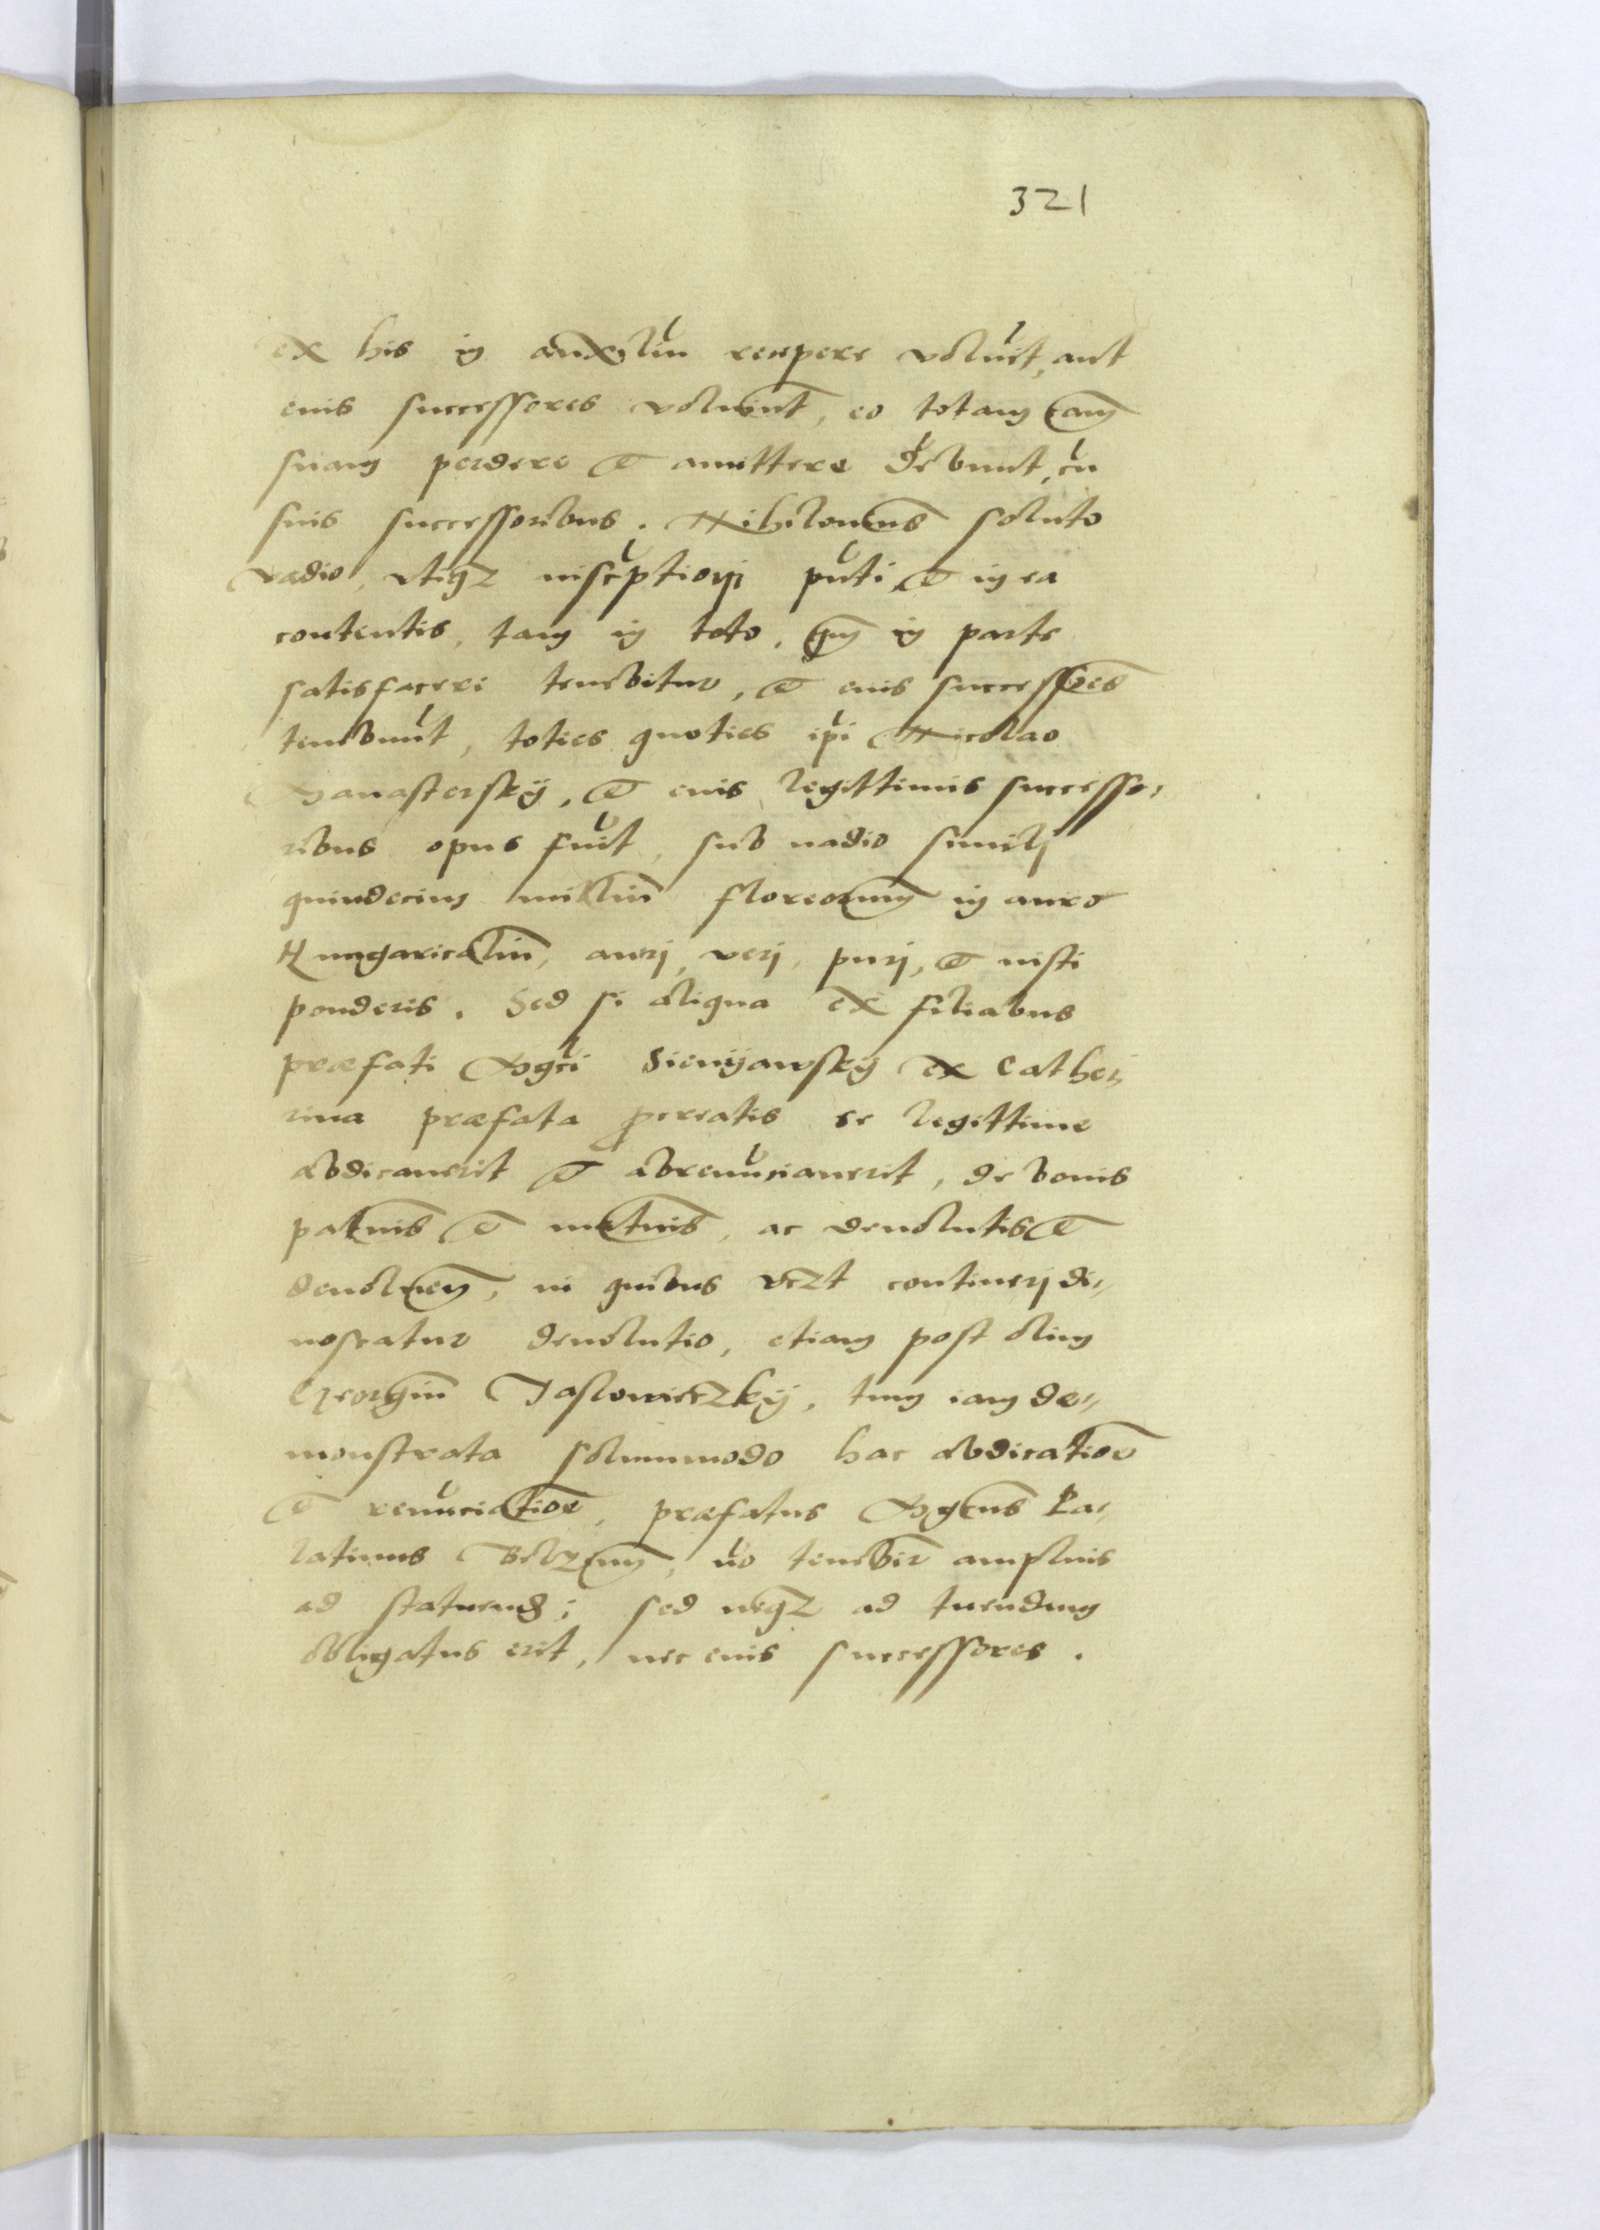 321
ex his in auxiliū recipere voluĩt, aut
eius successores voluerint, eo totam cam̃
suam perdere et amittere debunt, cũ
suis successoribus. Nihilominus soluto
vadio, vtiqz inscptioni pñti, et in ea
contentis, tam in toto, qm̃ in parte
satisfaceri tenebitur, et eius successores
tenebunt, toties quoties ipi Nicolao
Vanasterskÿ, et eius legittimis successo„
ribus opus fuĩt, sub uadio simili
quindecim milliũ florenorum in auro
Hungaricaliũ, auri, veri, puri, et iusti
ponderis. Sed si aliqua ex filiabus
præfati Mgci Sienÿawskÿ ex Cathe„
rina præfata pcreatis se legittime
abdicauerit et abrenũciauerit, de bonis
patnis et matnis, ac deuolutis et
deuoluen̄, in quibus vczt contineri di„
noscatur deuolutio, etiam post olim
Georgiũ Jaslowieczkÿ, tum iam de„
monstrata solummodo hac abdicatione
et renũciatione, præfatus Mgcus Pa„
latinus Belzen̄, nõ tenebir̃ amplius
ad statuend; sed neqz ad tuendum
obligatus erit, nec eius successores.